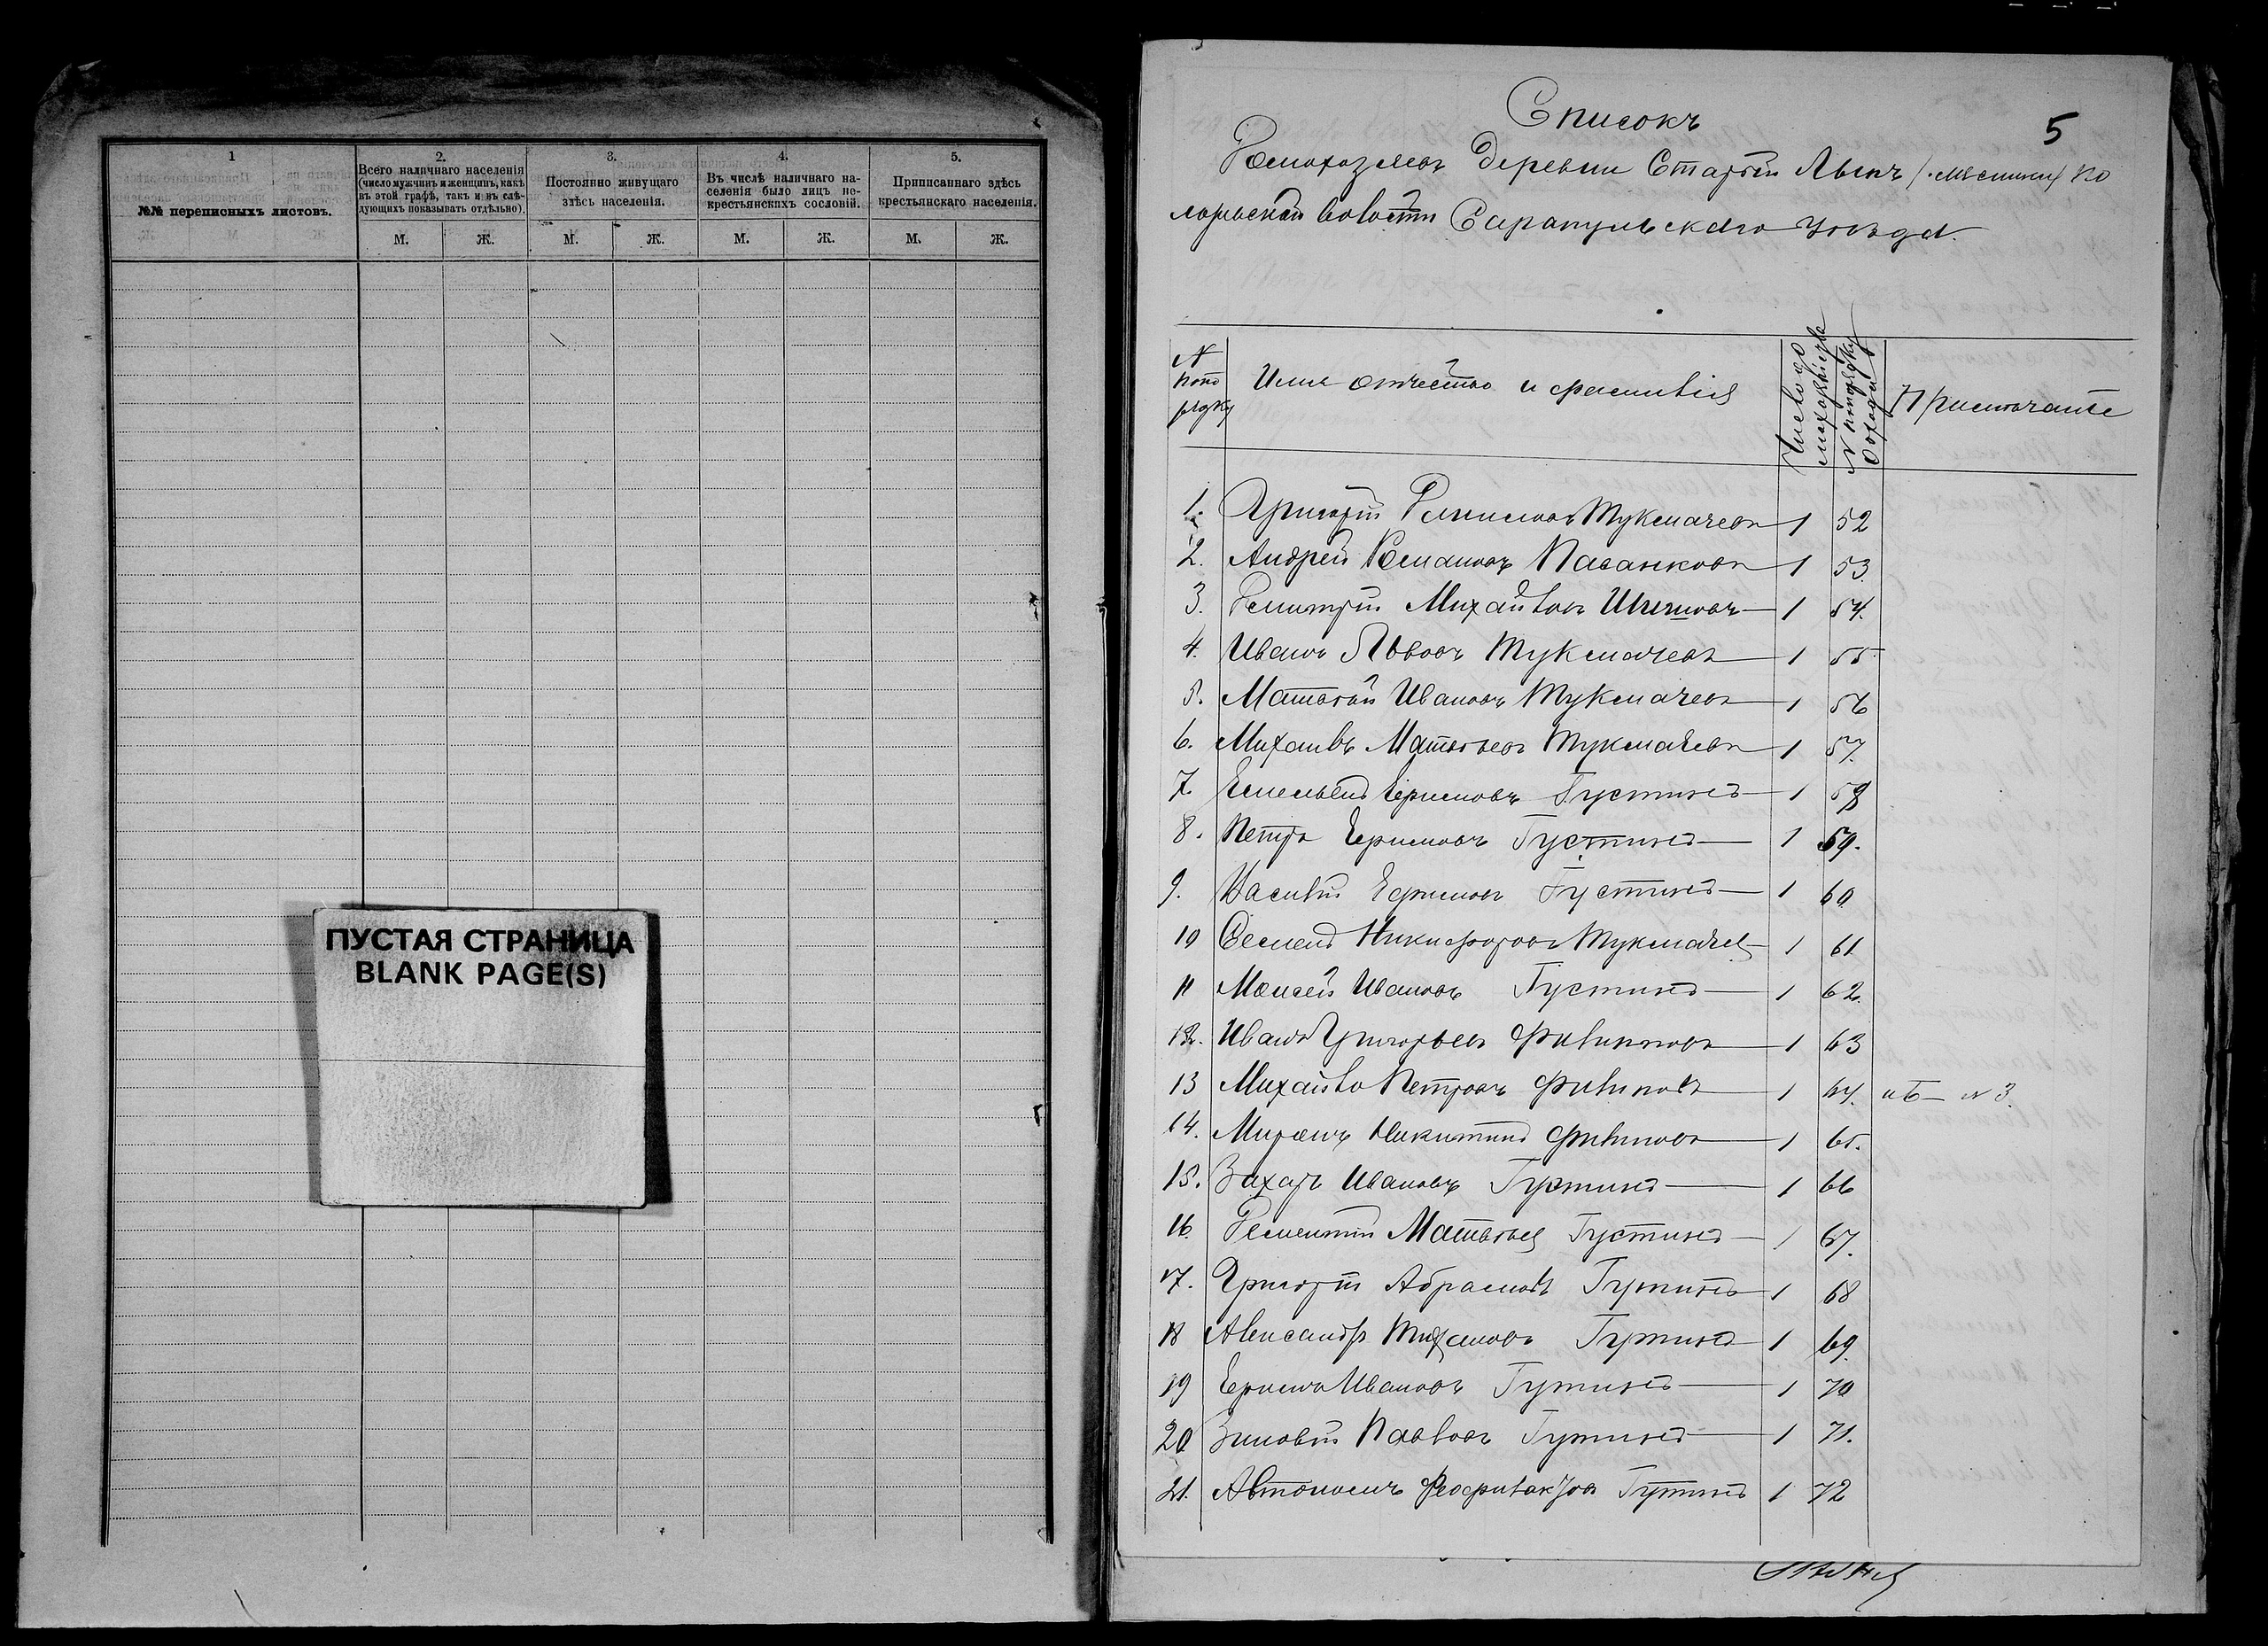 1
№№ переписныхъ листовъ.
2.
Всего наличнаго населенія
(число мужчинъ и женщинъ, какъ
въ этой графѣ, такъ и въ слѣ-
дующихъ показывать отдѣльно).
3.
Постоянно живущаго
здѣсь населенія.
4.
Въ числѣ наличнаго на-
селенія было лицъ не-
крестьянскихъ сословій.
5.
Приписаннаго здѣсь
крестьянскаго населенія.
М. Ж. М. Ж. М. Ж. М. Ж.
ПУСТАЯ СТРАНИЦА
BLANK PAGE(S)
Списокъ
5
Домохозяевъ деревни Старый
волости Сарапульскаго уѣзда.
№ по по рядку
Имя отчество и фамилія
Число до мохозяевъ
№ по порядку
Примѣчаніе
1. Григорій Тукмачевъ 1 52
2. Андрей Романовъ Касанковъ 1 53
3. Дмитрій Михайловъ Шишовъ 1 54.
4. Иванъ Львовъ Тукмачевъ 1 55
5. Матвѣй Ивановъ Тукмачевъ 1 56
6. Михаилъ Матвѣевъ Тукмачевъ 1 57.
7. Емельянъ Ефимовъ Густинъ 1 58
8. Петръ Ефимовъ Густинъ 1 59.
9. Василій Ефимовъ Густинъ 1 60
10 Семенъ Никифоровъ Тукмачев 1 61
11 Моисей Ивановъ Густинъ 1 62.
12. Иванъ Григорьевъ Филиповъ 1 63
13 Михайло Петровъ Филиповъ 1 64. № 3.
14. Миронъ Никитинъ Филиповъ 1 65.
15. Захаръ Ивановъ Густинъ 1 66
16. Дементій Матвѣев Густинъ 1 67.
17. Григорій Абрамовъ Густинъ 1 68
18 Александръ Густинъ 1 69.
19 Ефимъ Ивановъ Густинъ 1 70
20 Зиновій Павловъ Густинъ 1 71.
21. Автономъ Феофилактов Густинъ 1 72